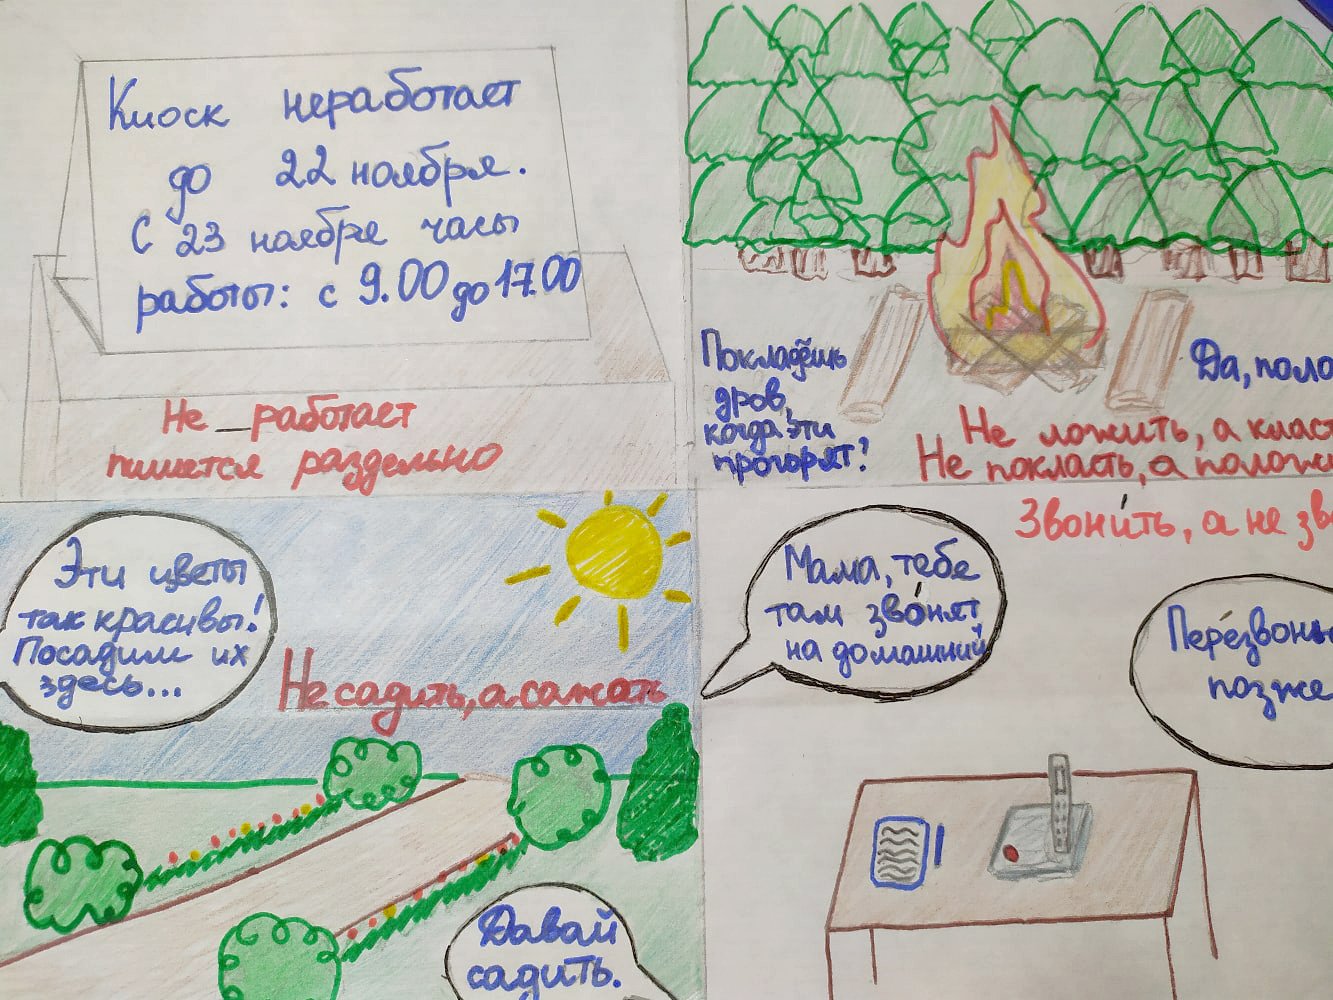 Киоск неработает
до 22 ноября.
С 23 ноября часы
работы: с 9.00 до 17.00
Не _ работает
пишется раздельно
Покладёшь
дров,
когда эти
прогорят?
Да, поло
Не ложить, а класт
Не покласть, а положи
Эти цветы
так красивы!
Посадим их
здесь...
Не садить, а сажать
Давай
садить.
Звони́ть, а не зв
Мама, тебе
там зво́нят
на домашний
Пере́звонь
позже